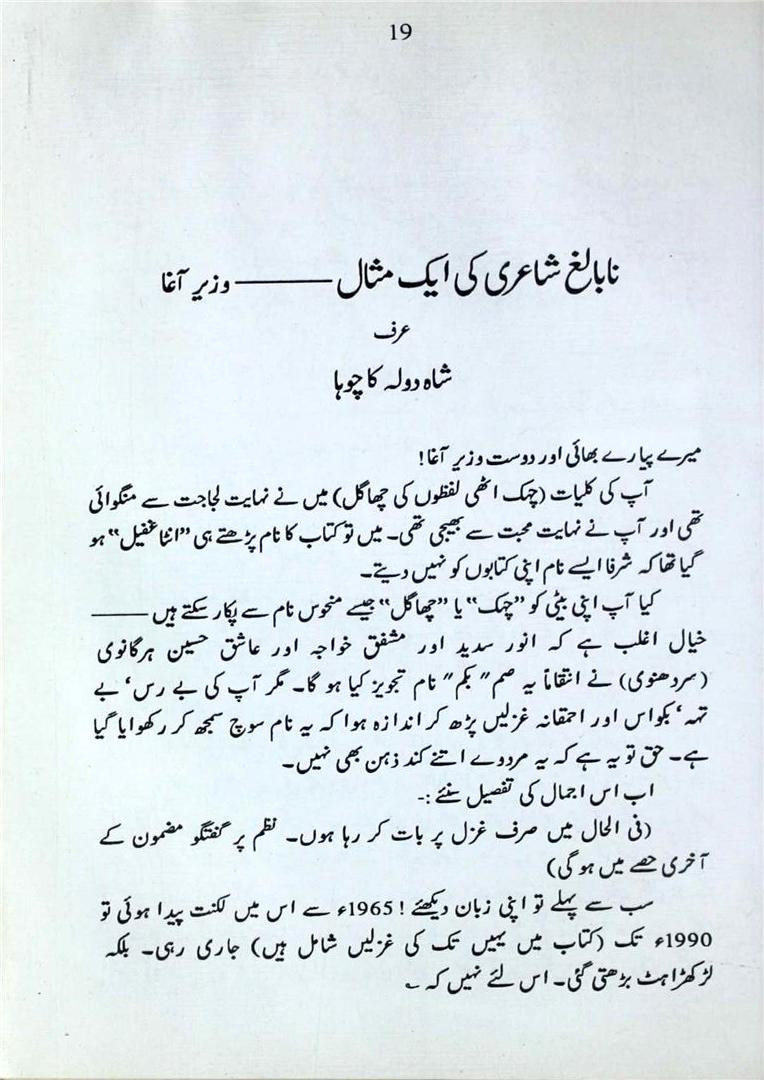 19
نابالغ شاعری کی ایک مثال ——— وزیر آغا
عرف
شاہ دولہ کا چوہا
میرے پیارے بھائی اور دوست وزیر آغا!
آپ کی کلیات (چہک اٹھی لفظوں کی چھاگل) میں نے نہایت لجاجت سے منگوائی
تھی اور آپ نے نہایت محبت سے بھیجی تھی۔ میں تو کتاب کا نام پڑھتے ہی ”انٹا غفیل“ ہو
گیا تھا کہ شرفا ایسے نام اپنی کتابوں کو نہیں دیتے۔
کیا آپ اپنی بیٹی کو ”چہک“ یا ”چھاگل“ جیسے منحوس نام سے پکار سکتے ہیں ———
خیال اغلب ہے کہ انور سدید اور مشفق خواجہ اور عاشق حسین ہرگانوی
(سردھنوی) نے انتقاماً یہ صم″ بکم″ نام تجویز کیا ہو گا۔ مگر آپ کی بے رس‘ بے
تہہ‘ بکواس اور احمقانہ غزلیں پڑھ کر اندازہ ہوا کہ یہ نام سوچ سمجھ کر رکھوایا گیا
ہے۔ حق تو یہ ہے کہ یہ مردوے اتنے کند ذہن بھی نہیں۔
اب اس اجمال کی تفصیل سنئے :-
(فی الحال میں صرف غزل پر بات کر رہا ہوں۔ نظم پر گفتگو مضمون کے
آخری حصے میں ہو گی)
سب سے پہلے تو اپنی زبان دیکھئے! 1965ء سے اس میں لکنت پیدا ہوئی تو
1990ء تک (کتاب میں یہیں تک کی غزلیں شامل ہیں) جاری رہی۔ بلکہ
لڑکھڑاہٹ بڑھتی گئی۔ اس لئے نہیں کہ ؎